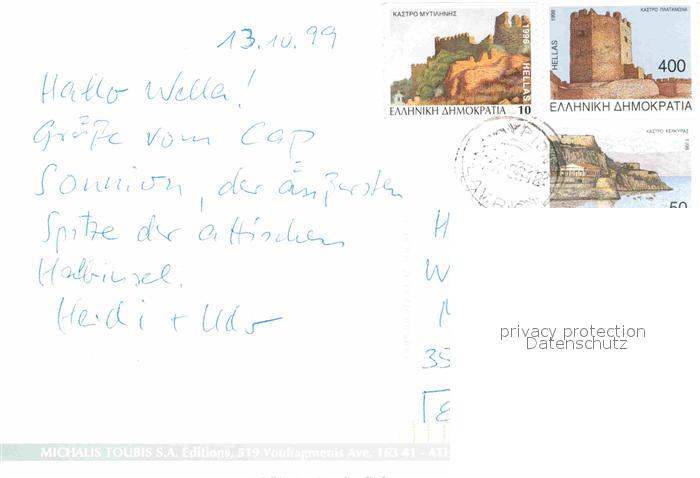 13.10.99
Hallo Wella!
Grüße vom Cap
Sounion, der äußersten
Spitze der attischen
Halbinsel.
Heidi + Udo
ΚΑΣΤΡΟ ΜΥΤΙΛΗΝΗΣ
1996 HELLAS
ΕΛΛΗΝΙΚΗ ΔΗΜΟΚΡΑΤΙΑ 10
ΚΑΣΤΡΟ ΠΛΑΤΑΜΩΝΑ
1996
HELLAS
400
ΕΛΛΗΝΙΚΗ ΔΗΜΟΚΡΑΤΙΑ
ΚΑΣΤΡΟ ΚΕΡΚΥΡΑΣ
1996
50
H
W
35
privacy protection
Datenschutz
MICHALIS TOUBIS S.A. Editions, 519 Vouliagmenis Ave. 163 41 - ATH